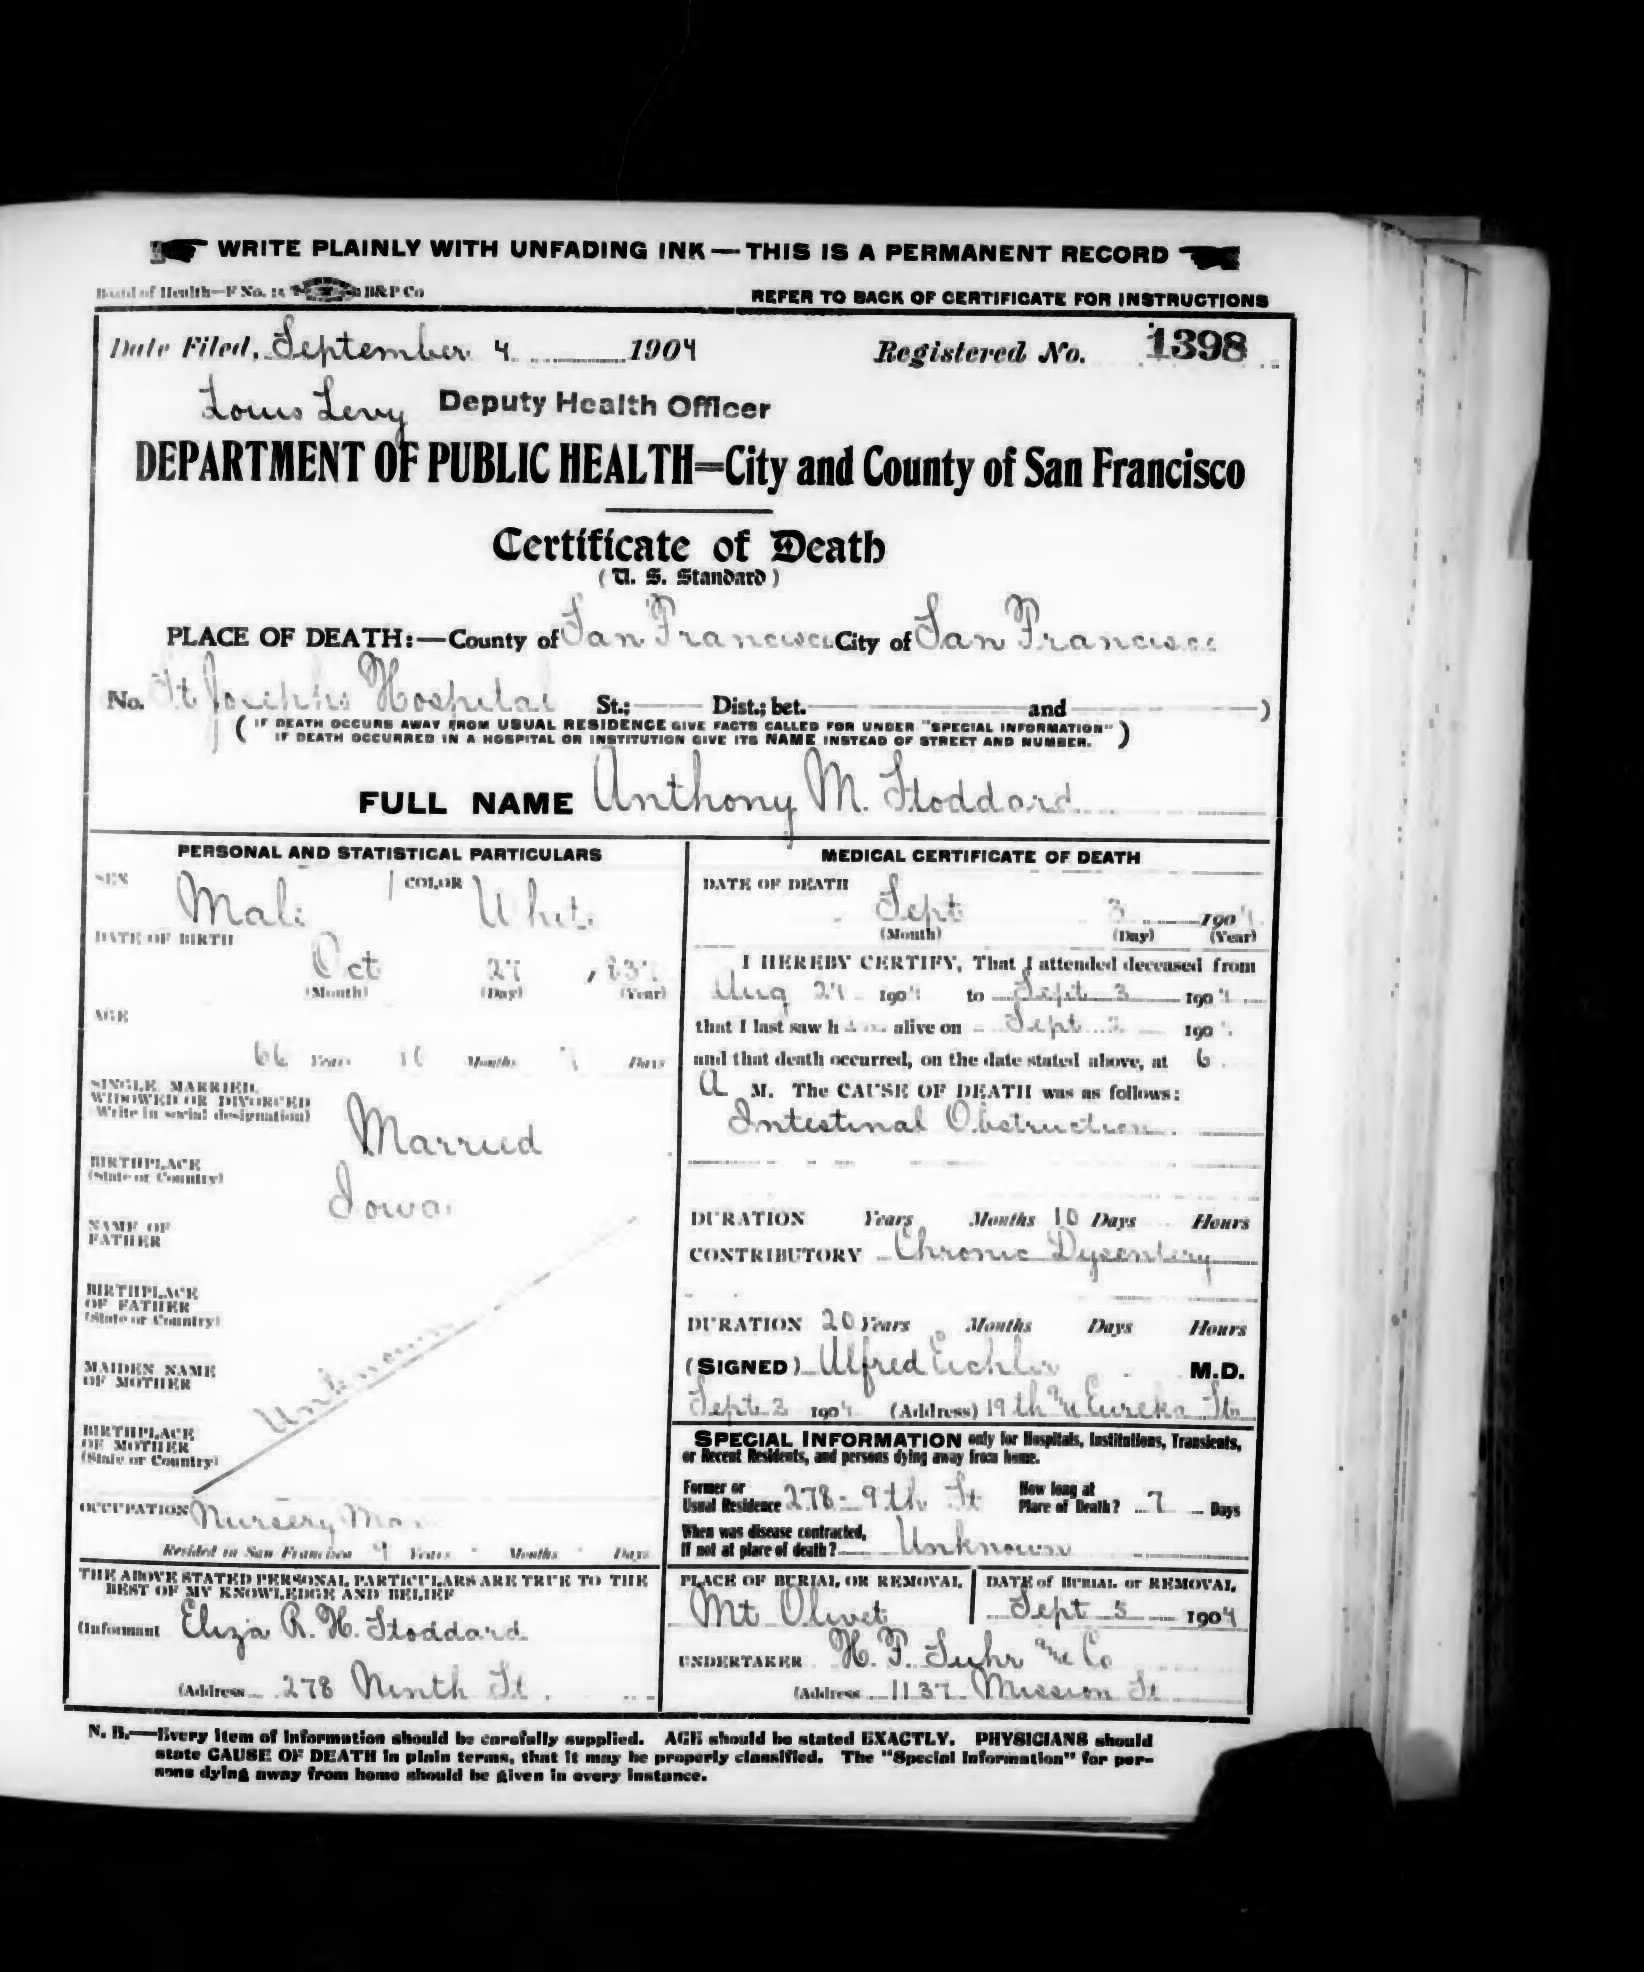 WRITE PLAINLY WITH UNFADING INK — THIS IS A PERMANENT RECORD
Board of Health—F No. 14 B&P Co REFER TO BACK OF CERTIFICATE FOR INSTRUCTIONS
Date Filed, September 4 1904 Registered No. 1398
Louis Levy Deputy Health Officer
DEPARTMENT OF PUBLIC HEALTH=City and County of San Francisco
Certificate of Death
(U. S. Standard)
PLACE OF DEATH:—County of San Francisco City of San Francisco
No. St Josephs Hospital St.; Dist.; bet. and )
( IF DEATH OCCURS AWAY FROM USUAL RESIDENCE GIVE FACTS CALLED FOR UNDER "SPECIAL INFORMATION"
IF DEATH OCCURRED IN A HOSPITAL OR INSTITUTION GIVE ITS NAME INSTEAD OF STREET AND NUMBER. )
FULL NAME Anthony M. Stoddard
PERSONAL AND STATISTICAL PARTICULARS
SEX Male COLOR White
DATE OF BIRTH
Oct 27 , 1837
(Month) (Day) (Year)
AGE
66 Years 10 Months 7 Days
SINGLE, MARRIED,
WIDOWED OR DIVORCED
(Write in social designation) Married
BIRTHPLACE
(State or Country) Iowa
NAME OF
FATHER
BIRTHPLACE
OF FATHER
(State or Country)
Unknown
MAIDEN NAME
OF MOTHER
BIRTHPLACE
OF MOTHER
(State or Country)
OCCUPATION Nursery Man
Resided in San Francisco 4 Years - Months - Days
THE ABOVE STATED PERSONAL PARTICULARS ARE TRUE TO THE
BEST OF MY KNOWLEDGE AND BELIEF
(Informant Eliza R. H. Stoddard
(Address 278 Ninth St.
MEDICAL CERTIFICATE OF DEATH
DATE OF DEATH
Sept 3 1904
(Month) (Day) (Year)
I HEREBY CERTIFY, That I attended deceased from
Aug 27 1904 to Sept 3 1904
that I last saw him alive on Sept 2 1904
and that death occurred, on the date stated above, at 6
A M. The CAUSE OF DEATH was as follows:
Intestinal Obstruction
DURATION Years Months 10 Days Hours
CONTRIBUTORY Chronic Dysentery
DURATION 20 Years Months Days Hours
(SIGNED) Alfred Eichler M.D.
Sept 3 1904 (Address) 19th & Eureka Sts
SPECIAL INFORMATION only for Hospitals, Institutions, Transients,
or Recent Residents, and persons dying away from home.
Former or
Usual Residence 278- 9th St How long at
Place of Death? 7 Days
When was disease contracted,
If not at place of death? Unknown
PLACE OF BURIAL OR REMOVAL DATE of BURIAL or REMOVAL
Mt Olivet Sept 5 1904
UNDERTAKER H. F. Suhr and Co
(Address 1137 Mission St
N. B.—Every item of information should be carefully supplied. AGE should be stated EXACTLY. PHYSICIANS should
state CAUSE OF DEATH in plain terms, that it may be properly classified. The "Special Information" for per-
sons dying away from home should be given in every instance.